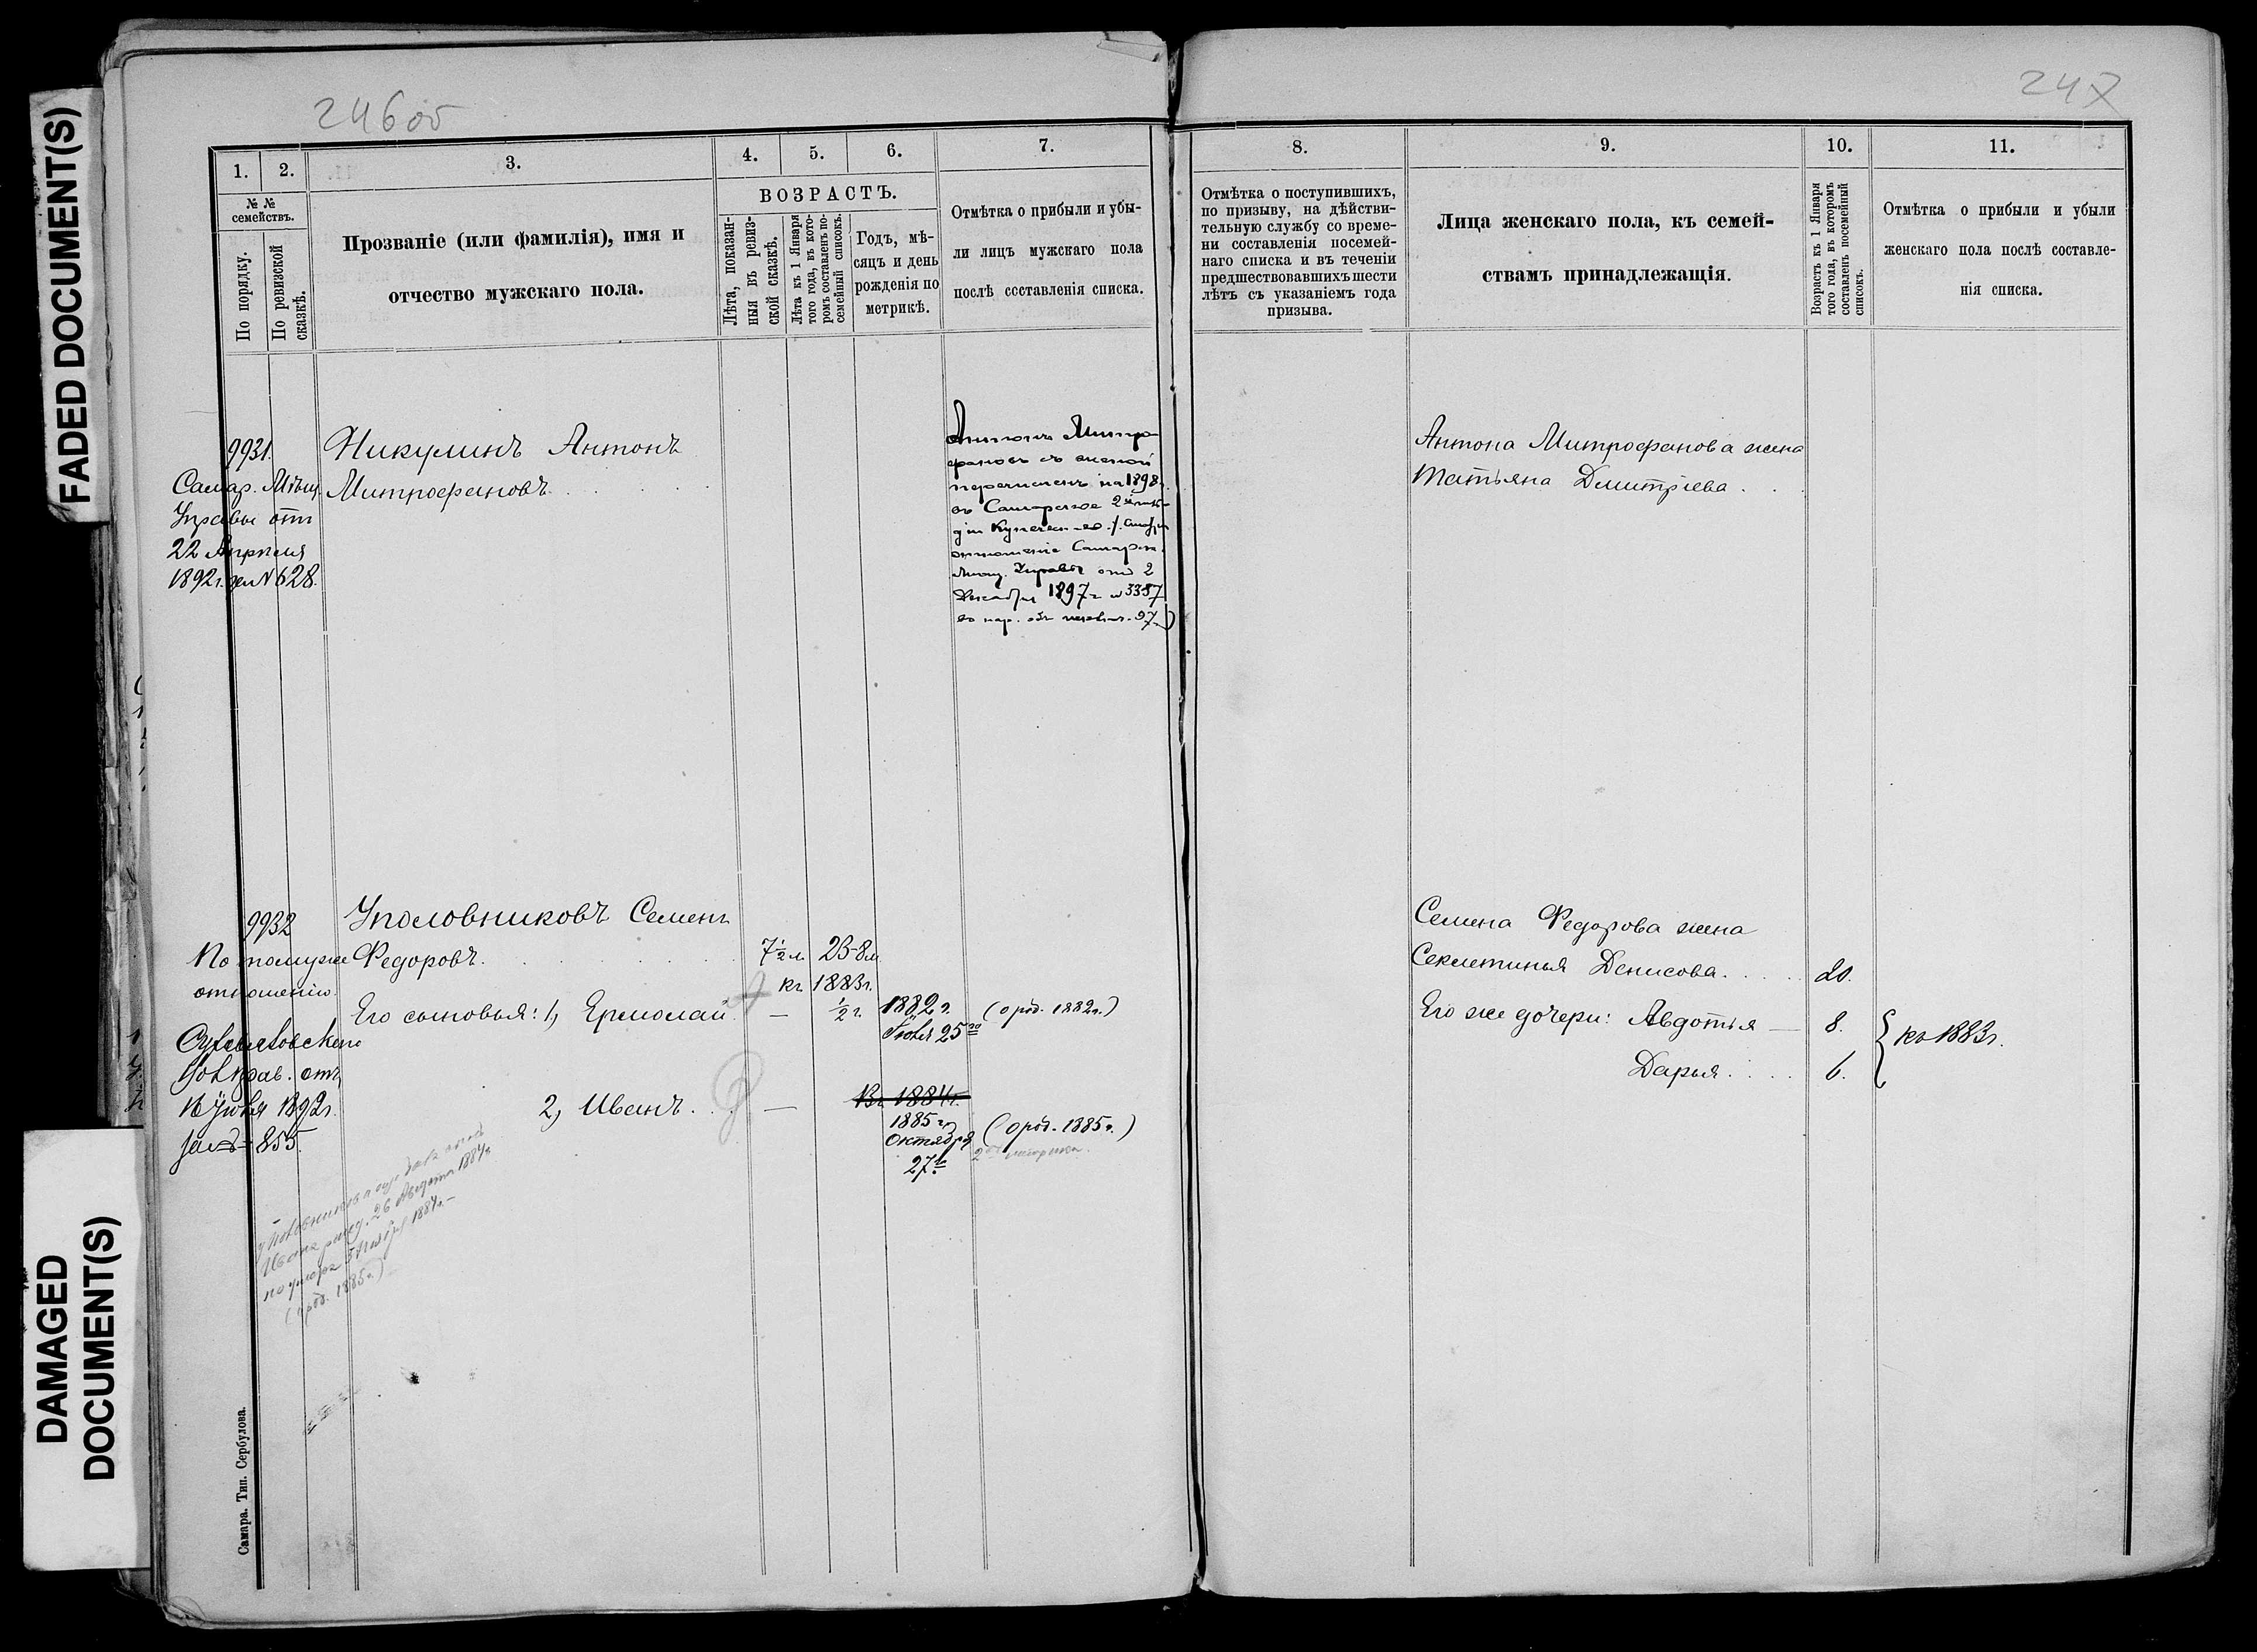 FADED DOCUMENT(S)
DAMAGED
DOCUMENT(S)
246 об
1.
2.
3.
4.
5.
6.
7.
№ №
семействъ.
По порядку.
По ревизской
сказкѣ.
Прозваніе (или фамилія), имя и
отчество мужскаго пола.
ВОЗРАСТЪ.
Лѣта, показан-
ныя въ ревиз-
ской сказкѣ.
Лѣта къ 1 Января
того года, въ кото-
ромъ составленъ по-
семейный списокъ.
Годъ, мѣ-
сяцъ и день
рожденія по
метрикѣ.
Отмѣтка о прибыли и убы-
ли лицъ мужскаго пола
послѣ составленія списка.
9931.
Самар. Мѣщ.
Управы отъ
22 Апрѣля
1892 г. № 628.
Никулинъ Антонъ
Митрофановъ
Антонъ Митро
фановъ съ женой
перечисленъ на 1898 г.
въ Самарское 2й гиль-
діи Купечес-во
отношеніе Самарск.
Мѣщ. Управы отъ 2
Декабря 1897 г № 3357
9932
По тому же
отношенію
Управ. отъ
Іюня 1892 г.
855.
Уполовниковъ Семенъ
Федоровъ
7½ л.
25-8 м.
къ 1883 г.
Его сыновья: 1, Ермолай
—
½ г.
1882 г.
Іюля 25го
(о род. 1882 г.)
2, Иванъ
—
Въ 1884 г.
1885 г.
Октября
27го
(о род. 1885 г.)
Ивана 26 Августа 1884 г
5 Ноября 1884 г. –
1885 г.)
Самара. Тип. Сербулова.
247
8.
9.
10.
11.
Отмѣтка о поступившихъ,
по призыву, на дѣйстви-
тельную службу со време-
ни составленія посемей-
наго списка и въ теченіи
предшествовавшихъ шести
лѣтъ съ указаніемъ года
призыва.
Лица женскаго пола, къ семей-
ствамъ принадлежащія.
Возрастъ къ 1 Января
того года, въ которомъ
составленъ посемейный
списокъ.
Отмѣтка о прибыли и убыли
женскаго пола послѣ составле-
нія списка.
Антона Митрофанова жена
Татьяна Дмитріева
Семена Федорова жена
Секлетинья Денисова
20.
Его же дочери: Авдотья —
8.
къ 1883 г.
Дарья
6.